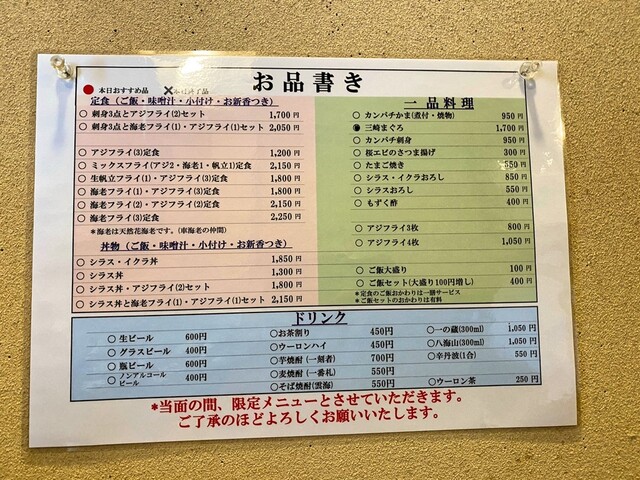 お品書き
● 本日おすすめ品 ✕本日終了品
定食（ご飯・味噌汁・小付け・お新香つき）
○ 刺身3点とアジフライ(2)セット 1,700 円
○ 刺身3点と海老フライ(1)・アジフライ(1)セット 2,050 円
○ アジフライ(3)定食 1,200 円
○ ミックスフライ(アジ2・海老1・帆立1)定食 2,150 円
○ 生帆立フライ(1)・アジフライ(3)定食 1,800 円
○ 海老フライ(1)・アジフライ(3)定食 1,800 円
○ 海老フライ(2)・アジフライ(2)定食 2,150 円
○ 海老フライ(3)定食 2,250 円
*海老は天然花海老です。（車海老の仲間）
丼物（ご飯・味噌汁・小付け・お新香つき）
○ シラス・イクラ丼 1,850 円
○ シラス丼 1,300 円
○ シラス丼・アジフライ(2)セット 1,800 円
○ シラス丼と海老フライ(1)・アジフライ(1)セット 2,150 円
一品料理
○ カンパチかま(煮付・焼物) 950 円
○ 三崎まぐろ 1,700 円
○ カンパチ刺身 950 円
○ 桜エビのさつま揚げ 300 円
○ たまご焼き 550 円
○ シラス・イクラおろし 850 円
○ シラスおろし 550 円
○ もずく酢 400 円
○ アジフライ3枚 800 円
○ アジフライ4枚 1,050 円
○ ご飯大盛り 100 円
○ ご飯セット(大盛り100円増し) 400 円
*定食のご飯おかわりは一膳サービス
*ご飯セットのおかわりは有料
ドリンク
○ 生ビール 600円
○ グラスビール 400円
○ 瓶ビール 600円
○ ノンアルコールビール 400円
○お茶割り 450円
○ウーロンハイ 450円
○芋焼酎（一刻者） 700円
○麦焼酎（一番札） 550円
○そば焼酎(雲海) 550円
○一の蔵(300ml) 1,050 円
○八海山(300ml) 1,050 円
○辛丹波(1合) 550 円
○ウーロン茶 250 円
*当面の間、限定メニューとさせていただきます。
ご了承のほどよろしくお願いいたします。